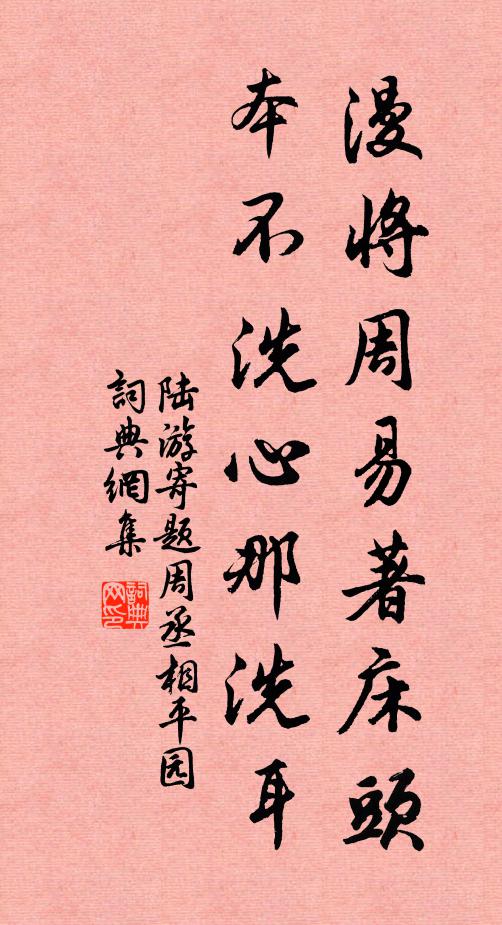 漫將周易著床頭
本不洗心那洗耳
陆游寄题周丞相平园
詞典網集
詞典
网印